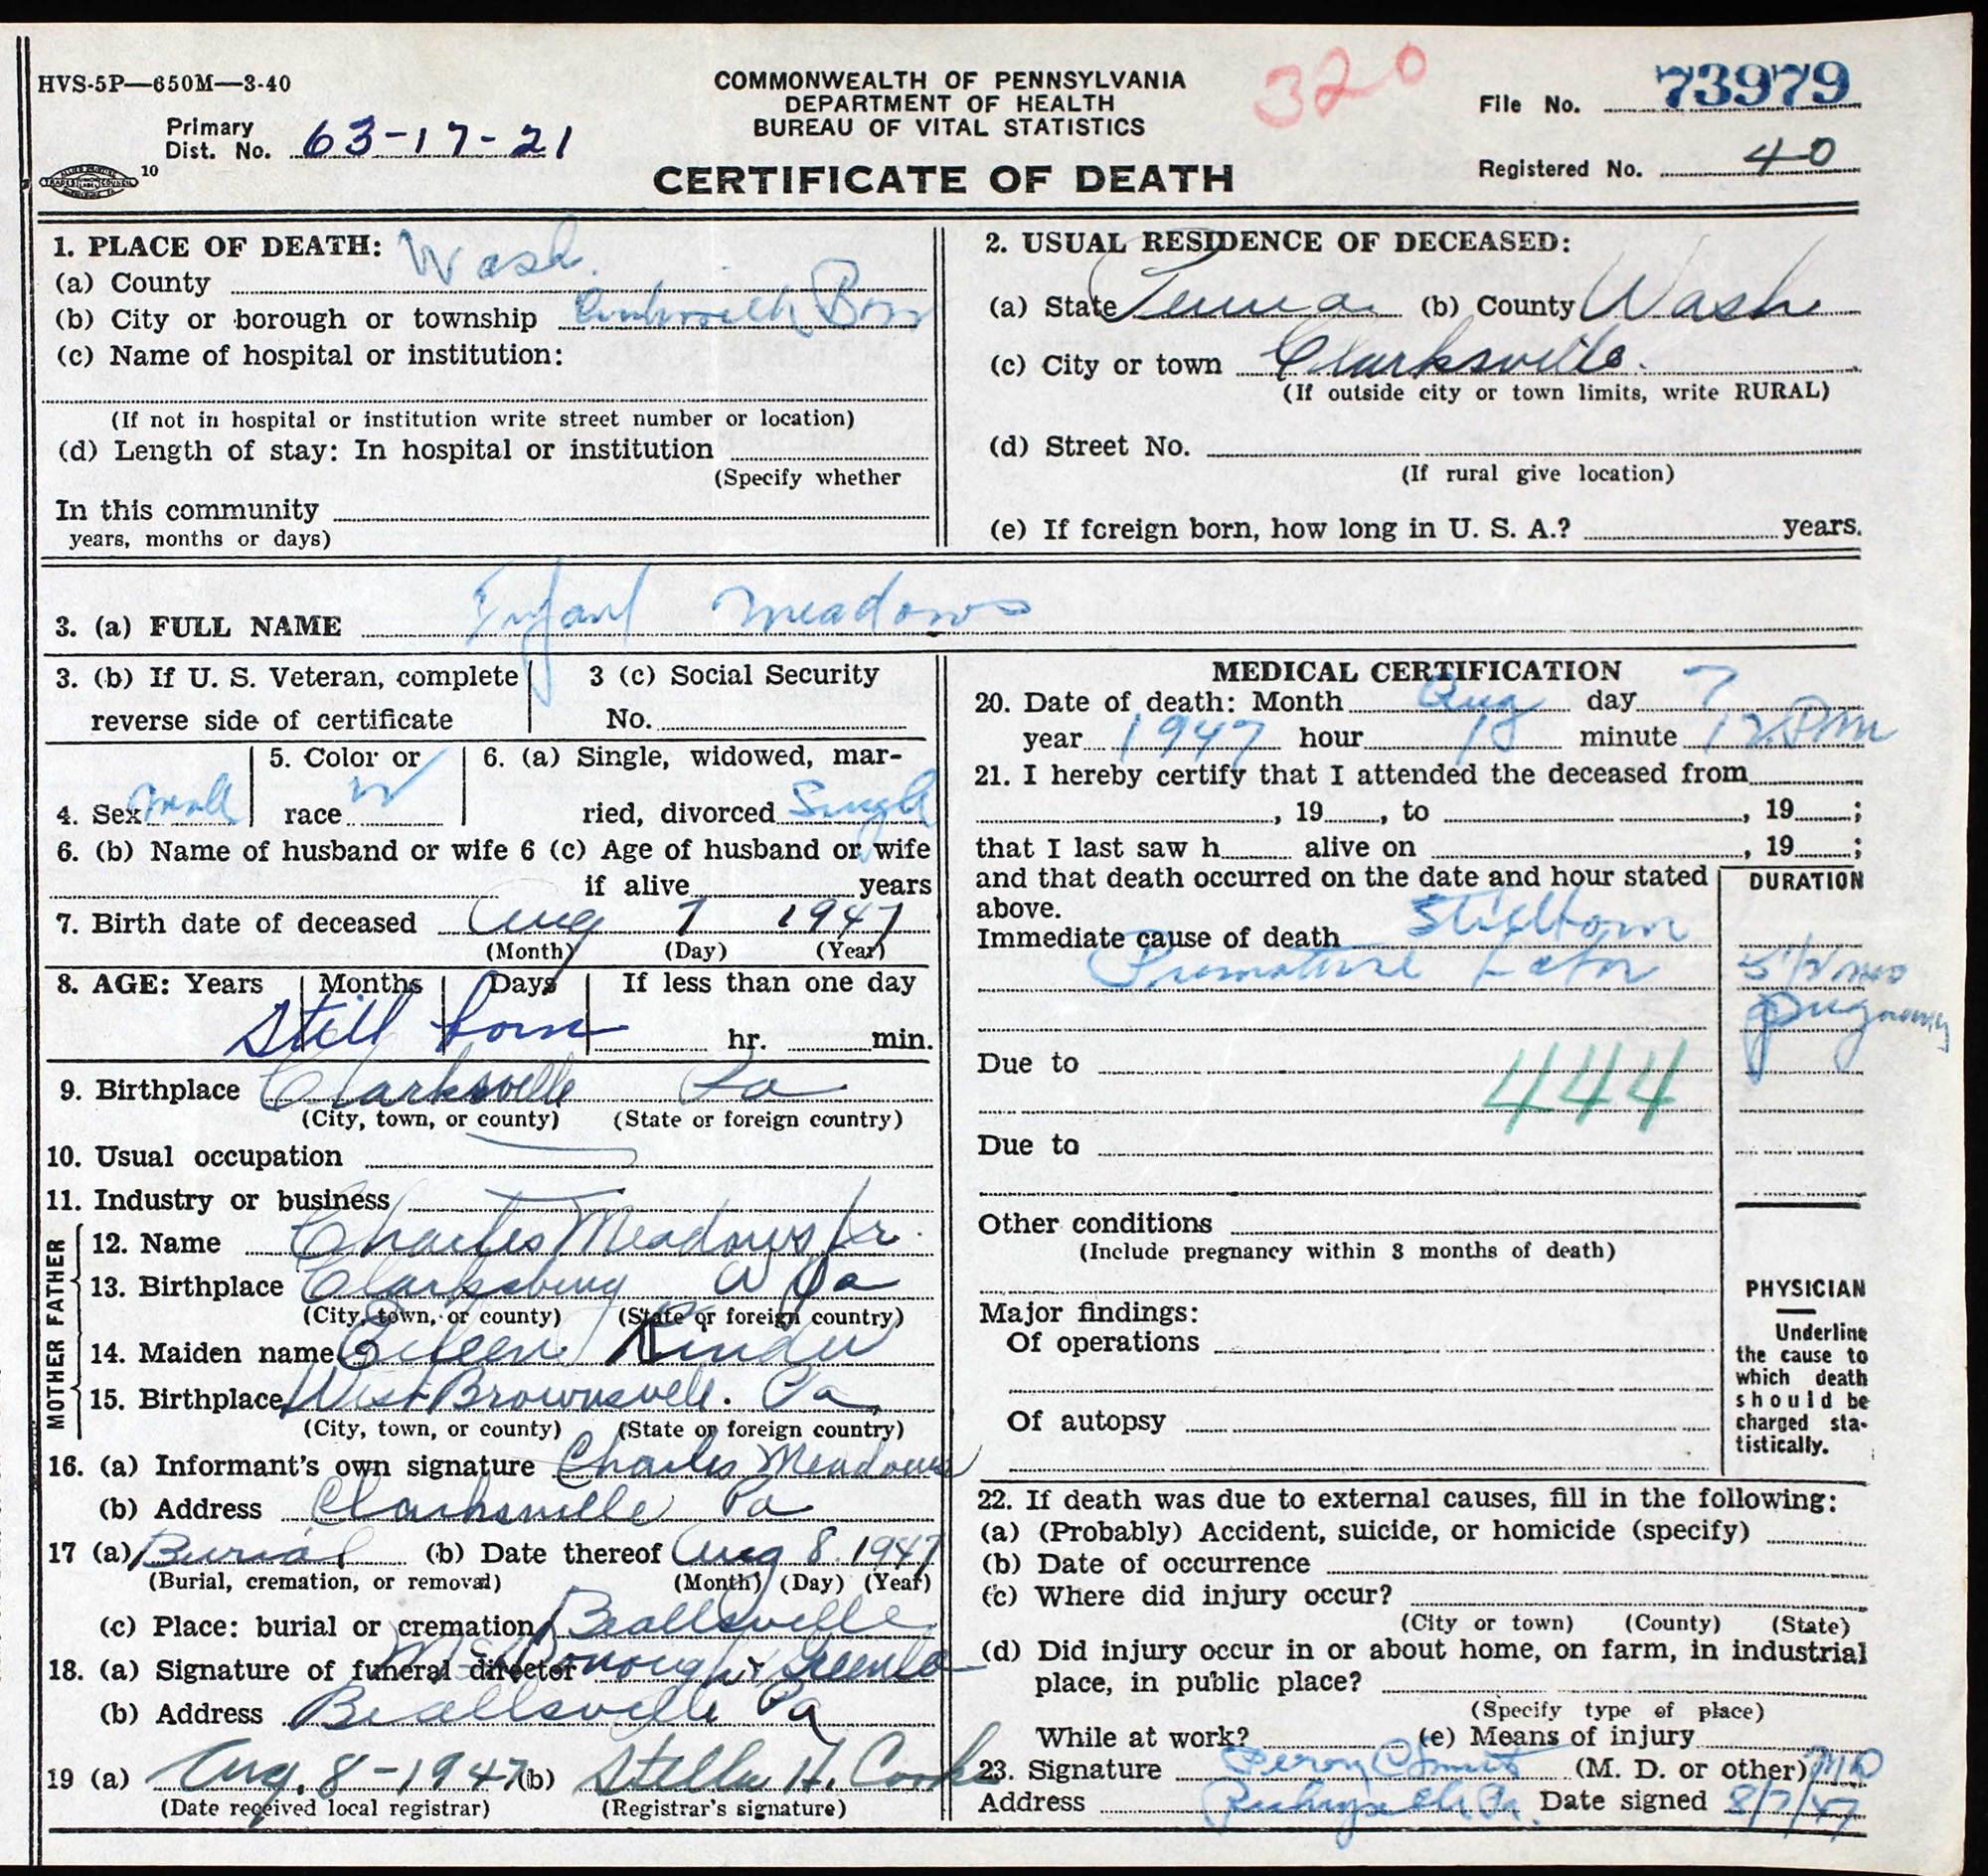 HVS-5P—650M—3-40
COMMONWEALTH OF PENNSYLVANIA
DEPARTMENT OF HEALTH
BUREAU OF VITAL STATISTICS
CERTIFICATE OF DEATH
320
File No. 73979
Primary
Dist. No. 63-17-21
Registered No. 40
10
1. PLACE OF DEATH:
(a) County Wash.
(b) City or borough or township Boro
(c) Name of hospital or institution:
(If not in hospital or institution write street number or location)
(d) Length of stay: In hospital or institution
(Specify whether
In this community
years, months or days)
2. USUAL RESIDENCE OF DECEASED:
(a) State Penna. (b) County Wash
(c) City or town Clarksville.
(If outside city or town limits, write RURAL)
(d) Street No.
(If rural give location)
(e) If foreign born, how long in U. S. A.? years.
3. (a) FULL NAME Infant Meadows
3. (b) If U. S. Veteran, complete
reverse side of certificate
3 (c) Social Security
No.
4. Sex Male
5. Color or
race W
6. (a) Single, widowed, mar-
ried, divorced Single
6. (b) Name of husband or wife 6 (c) Age of husband or wife
if alive years
7. Birth date of deceased Aug 7 1947
(Month) (Day) (Year)
8. AGE: Years Months Days If less than one day
Still born hr. min.
9. Birthplace Clarksville Pa
(City, town, or county) (State or foreign country)
10. Usual occupation
11. Industry or business
FATHER
12. Name Charles Meadows Jr.
13. Birthplace Clarksburg W Va
(City, town, or county) (State or foreign country)
MOTHER
14. Maiden name Eileen Kinder
15. Birthplace West Brownsvill. Pa
(City, town, or county) (State or foreign country)
16. (a) Informant's own signature Charles Meadows
(b) Address Clarksville Pa
17 (a) Burial (b) Date thereof Aug 8. 1947
(Burial, cremation, or removal) (Month) (Day) (Year)
(c) Place: burial or cremation Beallsville
18. (a) Signature of funeral director McDonough & Greenlee
(b) Address Beallsville Pa
19 (a) Aug. 8-1947 (b) Stella H. Cooke
(Date received local registrar) (Registrar's signature)
MEDICAL CERTIFICATION
20. Date of death: Month Aug day 7
year 1947 hour minute 12 PM
21. I hereby certify that I attended the deceased from
, 19 , to , 19 ;
that I last saw h alive on , 19 ;
and that death occurred on the date and hour stated
above.
DURATION
Immediate cause of death Stillborn
Premature Labor 5 1/2 mos
pregnancy
Due to
444
Due to
Other conditions
(Include pregnancy within 3 months of death)
Major findings:
Of operations
Of autopsy
PHYSICIAN
Underline
the cause to
which death
should be
charged sta-
tistically.
22. If death was due to external causes, fill in the following:
(a) (Probably) Accident, suicide, or homicide (specify)
(b) Date of occurrence
(c) Where did injury occur?
(City or town) (County) (State)
(d) Did injury occur in or about home, on farm, in industrial
place, in public place?
(Specify type of place)
While at work? (e) Means of injury
23. Signature (M. D. or other) MD
Address Date signed 8/7/47